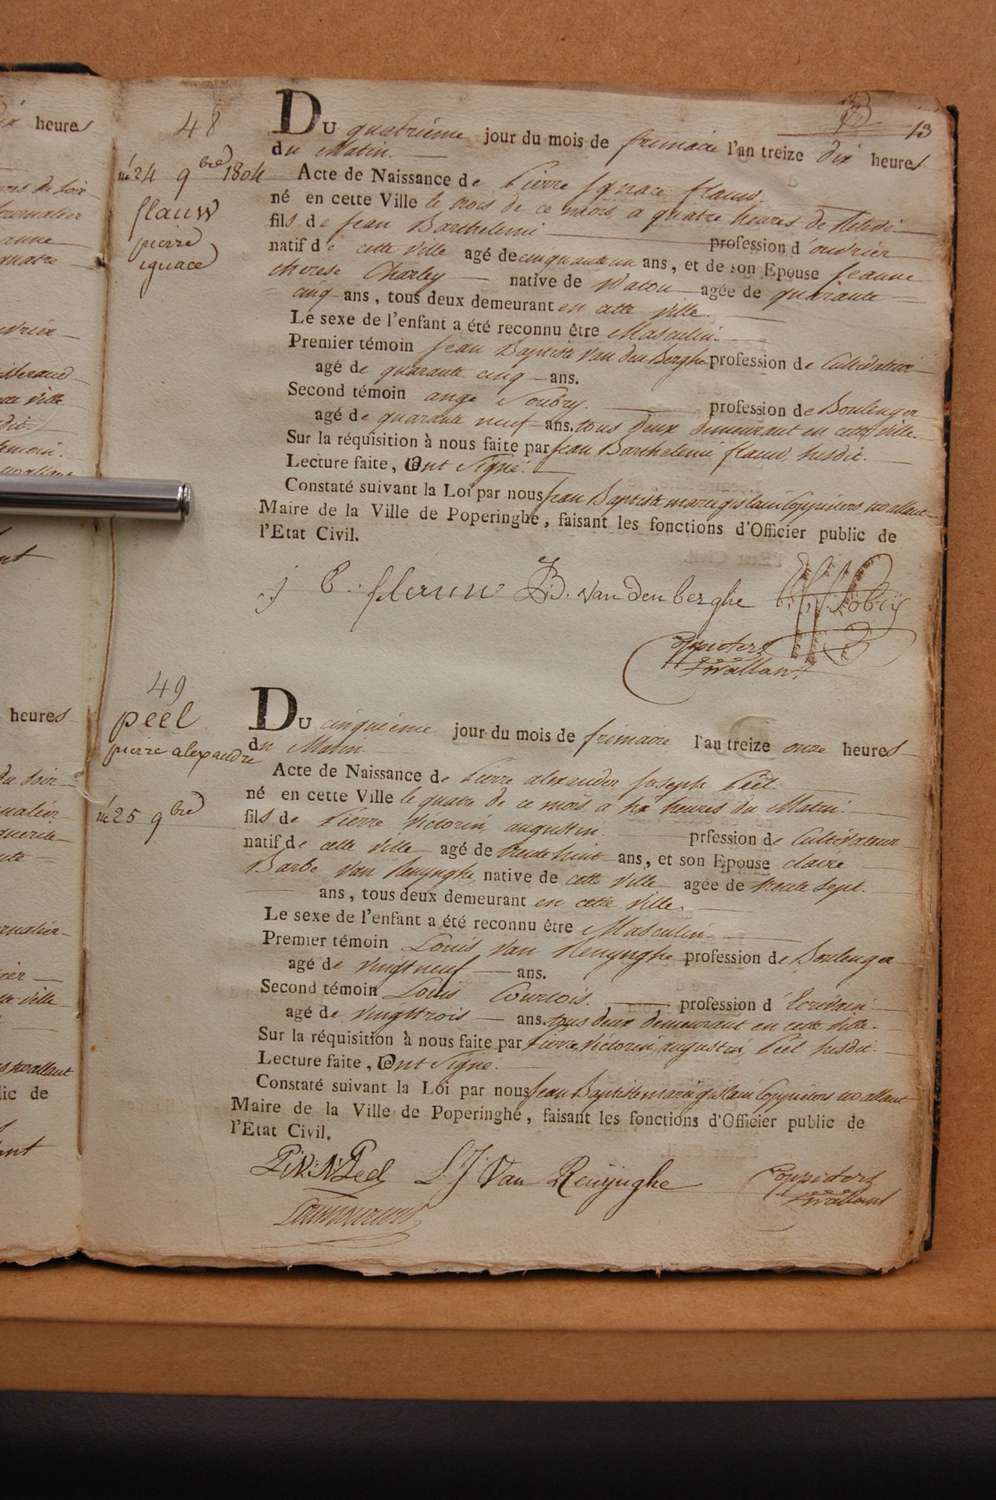 48
né 24 9bre 1804
flauw
pierre
ignace
13
Du quatrième jour du mois de frimaire l'an treize dix heures
du Matin.
Acte de Naissance de Pierre Ignace flauw
né en cette Ville le trois de ce mois, a quatre heures de Relevé
fils de Jean Barthelemi profession d'ouvrier
natif de cette ville agé de cinquante un ans, et de son Epouse Jeanne
therese Charley native de Watou agée de quarante
cinq ans, tous deux demeurant en cette ville.
Le sexe de l'enfant a été reconnu être Masculin.
Premier témoin Jean Baptiste Van den Berghe profession de Cultivateur
agé de quarante cinq ans.
Second témoin ange Soubry. profession de Boulenger
agé de quarante neuf ans. tous deux demeurant en cette ville.
Sur la réquisition à nous faite par Jean Barthelemi flauw, susdit.
Lecture faite, Ont Signé.
Constaté suivant la Loi par nous Jean Baptiste marie gislain Coppieters wallant
Maire de la Ville de Poperinghe, faisant les fonctions d'Officier public de
l'Etat Civil.
j B. flauw JB. van den berghe
Coppieters
Twallant
49
peel
pierre alexandre
né 25 9bre
Du cinquième jour du mois de frimaire l'an treize onze heures
du Matin
Acte de Naissance de Pierre alexander Joseph Peel
né en cette Ville le quatre de ce mois a heures du Matin
fils de Pierre Victorin augustin. prfession de Cultivateur
natif de cette ville agé de trente huit ans, et son Epouse claire
Barbe van Renynghe native de cette Ville agée de trente sept.
ans, tous deux demeurant en cette ville.
Le sexe de l'enfant a été reconnu être Masculin
Premier témoin Louis van Renynghe profession de Boulenger
agé de vingt neuf ans.
Second témoin Louis Courtois. profession d'Ecrivain
agé de vingt trois ans. tous deux demeurant en cette ville.
Sur la réquisition à nous faite par Pierre Victorin augustin Peel susdit.
Lecture faite, Ont Signé.
Constaté suivant la Loi par nous Jean Baptiste marie gislain Coppieters wallant
Maire de la Ville de Poperinghe, faisant les fonctions d'Officier public de
l'Etat Civil.
Peel L J Van Renynghe Coppieters
Twallant